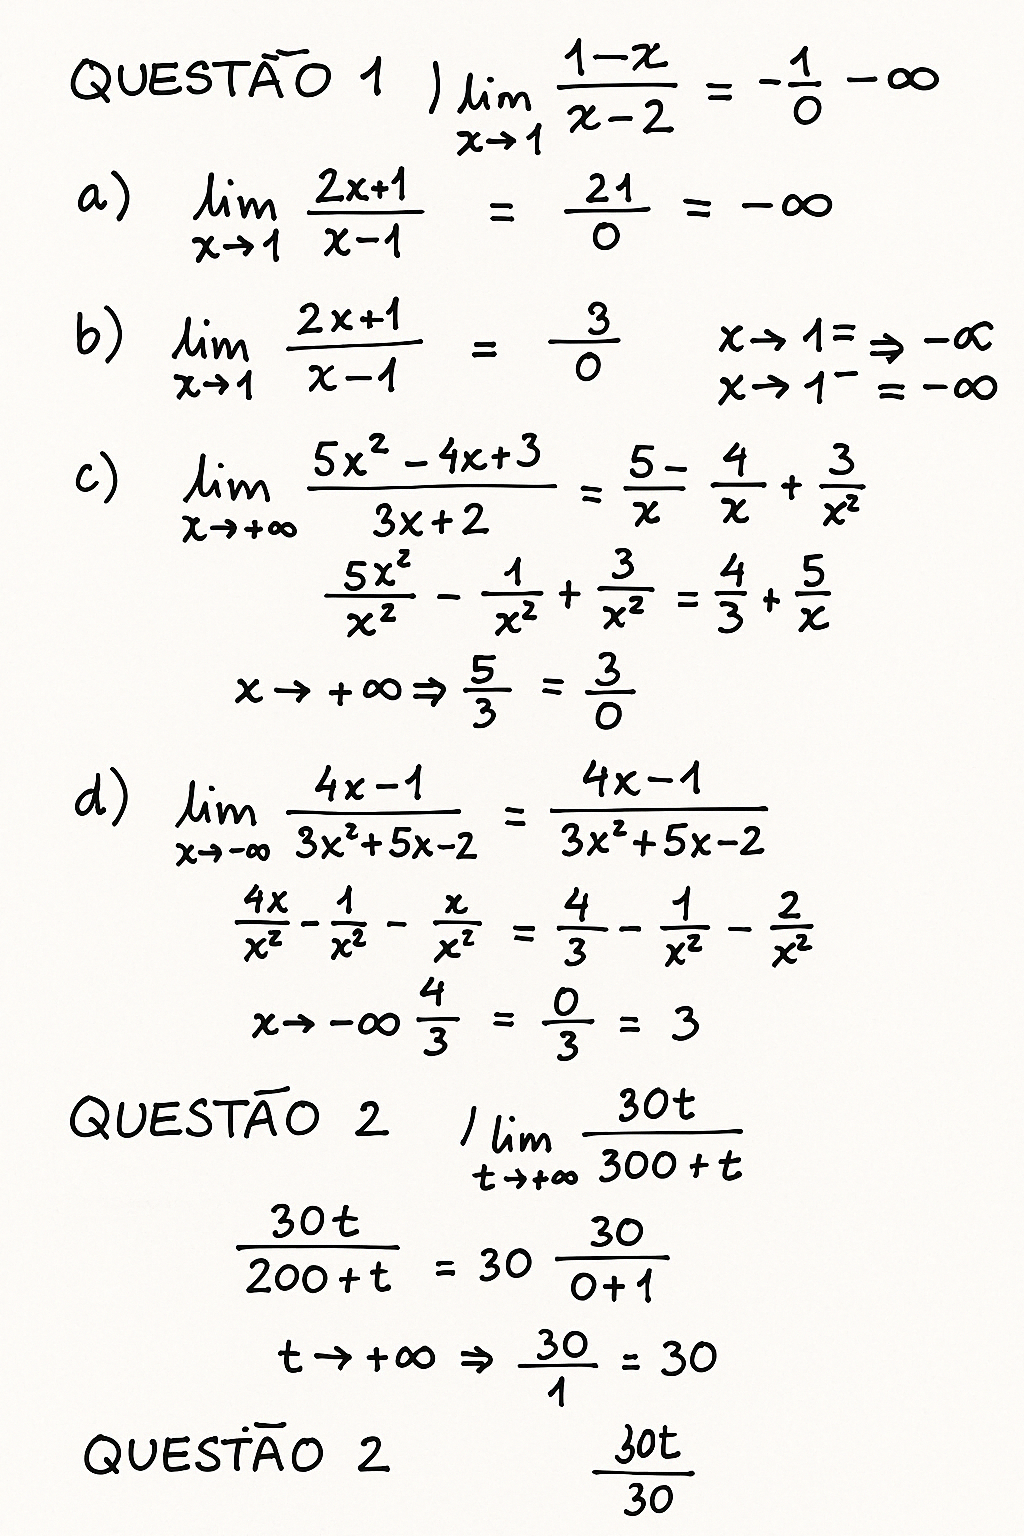 QUESTÃO 1 ) lim x→1 (1−x)/(x−2) = -1/0 −∞
a) lim x→1 (2x+1)/(x−1) = 21/0 = −∞
b) lim x→1 (2x+1)/(x−1) = 3/0 x→1= ⇒ −∝
x→1⁻ = −∞
c) lim x→+∞ (5x²−4x+3)/(3x+2) = 5−/x 4/x + 3/x²
5x²/x² − 1/x² + 3/x² = 4/3 + 5/x
x→+∞ ⇒ 5/3 = 3/0
d) lim x→-∞ (4x−1)/(3x²+5x−2) = (4x−1)/(3x²+5x−2)
4x/x² − 1/x² − x/x² = 4/3 − 1/x² − 2/x²
x→−∞ 4/3 = 0/3 = 3
QUESTÃO 2 / lim t→+∞ 30t/(300+t)
30t/(200+t) = 30 30/(0+1)
t→+∞ ⇒ 30/1 = 30
QUESTÃO 2 30t/30